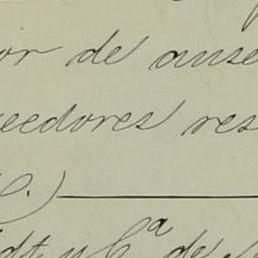 or de ause
eedores res
C.)
dt y Cª de S